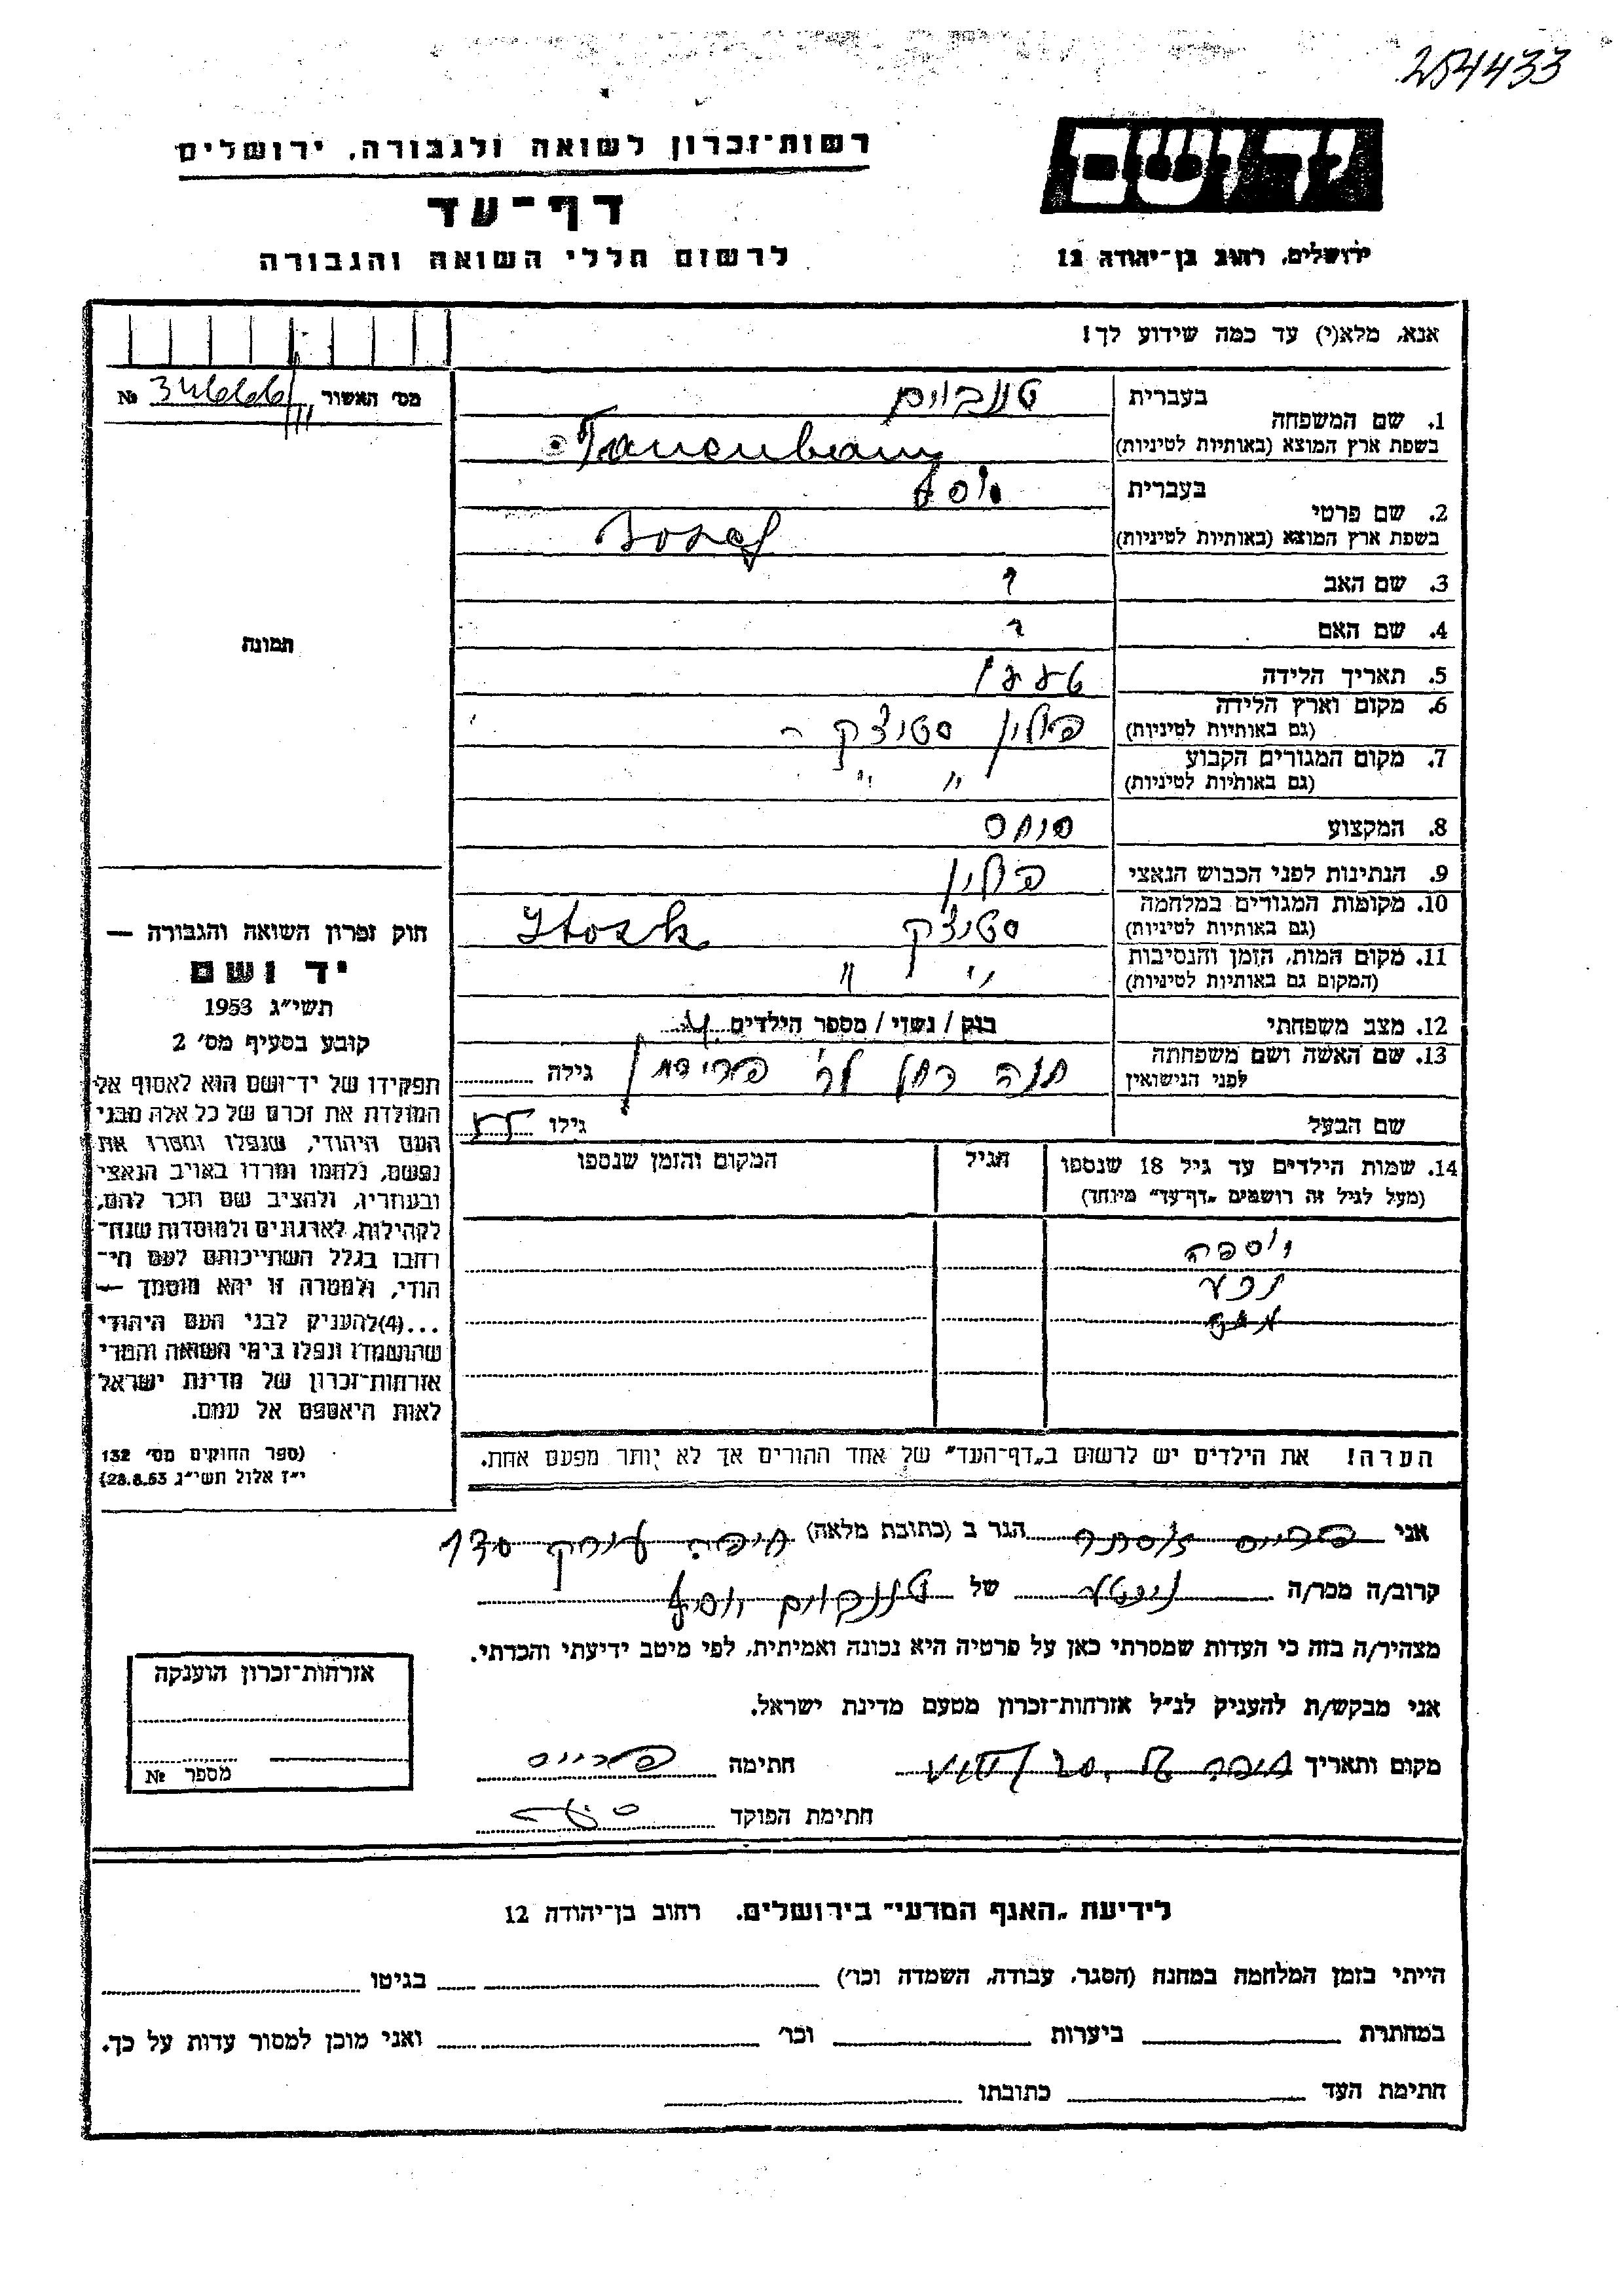 254433
יד ושם
רשות־זכרון לשואה ולגבורה, ירושלים
דף־עד
לרשום חללי השואה והגבורה
ירושלים, רחוב בן־יהודה 12
אנא, מלא(י) עד כמה שידוע לך!
מס׳ האשור 34666 №
1. שם המשפחה
בעברית טננבוים
בשפת ארץ המוצא (באותיות לטיניות) Tanenbaum
2. שם פרטי
בעברית יוסף
בשפת ארץ המוצא (באותיות לטיניות) Josef
3. שם האב ?
4. שם האם ?
5. תאריך הלידה
6. מקום וארץ הלידה
(גם באותיות לטיניות) פולין
7. מקום המגורים הקבוע
(גם באותיות לטיניות) " "
8. המקצוע סוחר
9. הנתינות לפני הכבוש הנאצי פולין
10. מקומות המגורים במלחמה
(גם באותיות לטיניות)
11. מקום המות, הזמן והנסיבות
(המקום גם באותיות לטיניות) " "
12. מצב משפחתי רווק / נשוי / מספר הילדים
13. שם האשה ושם משפחתה
לפני הנישואין חנה רחל לב׳ פרידמן גילה
שם הבעל גילו
14. שמות הילדים עד גיל 18 שנספו
(מעל לגיל זה רושמים „דף־עד” מיוחד)
הגיל
המקום והזמן שנספו
תמונה
חוק זכרון השואה והגבורה —
יד ושם
תשי״ג 1953
קובע בסעיף מס׳ 2
תפקידו של יד־ושם הוא לאסוף אל
המולדת את זכרם של כל אלה מבני
העם היהודי, שנפלו ומסרו את
נפשם, נלחמו ומרדו באויב הנאצי
ובעוזריו, ולהציב שם וזכר להם,
לקהילות, לארגונים ולמוסדות שנח־
רבו בגלל השתייכותם לעם הי־
הודי, ולמטרה זו יהא מוסמך —
...(4)להעניק לבני העם היהודי
שהושמדו ונפלו בימי השואה והמרי
אזרחות־זכרון של מדינת ישראל
לאות היאספם אל עמם.
(ספר החוקים מס׳ 132
י״ז אלול תשי״ג 28.8.53)
הערה! את הילדים יש לרשום ב„דף־העד” של אחד ההורים אך לא יותר מפעם אחת.
אני פרויס הגר ב (כתובת מלאה) חיפה
קרוב/ה מכר/ה של טננבוים יוסף
מצהיר/ה בזה כי העדות שמסרתי כאן על פרטיה היא נכונה ואמיתית, לפי מיטב ידיעתי והכרתי.
אני מבקש/ת להעניק לנ״ל אזרחות־זכרון מטעם מדינת ישראל.
מקום ותאריך חיפה חתימה פרויס
חתימת הפוקד
אזרחות־זכרון הוענקה
מספר №
לידיעת „האגף המדעי” בירושלים. רחוב בן־יהודה 12
הייתי בזמן המלחמה במחנה (הסגר, עבודה, השמדה וכו׳) בגיטו
במחתרת ביערות וכו׳ ואני מוכן למסור עדות על כך.
חתימת העד כתובתו